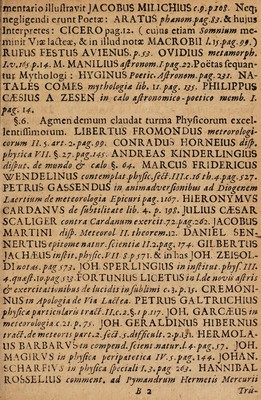 mentario illustravit JACOBUS MILICHIUS c.9.p.208. Neq;
negligendi erunt Poetæ: ARATUS phænom.pag.83. & hujus
Interpretes: CICERO pag.12. ( cujus etiam Somnium me-
minit Viæ lacteæ, & in illud notæ MACROBII l.15.pag.59.)
RUFUS FESTUS AVIENUS, p.52. OVIDIUS metamorph.
l.v.165 p.14. M. MANILIUS astronom.I.pag.22.Poëtas sequun-
tur Mythologi: HYGINUS Poetic.Astronom.pag.231. NA-
TALES COMES mythologia lib. 11. pag. 135. PHILIPPUS
CÆSIUS A ZESEN in cælo astronomico-poetico memb. I.
pag. 14.
§.6. Agmen demum claudat turma Physicorum excel-
lentissimorum. LIBERTUS FROMONDUS metrorologi-
corum II. 5. art.2.pag.99. CONRADUS HORNEIUS disp.
physica VII. §.27.pag.145. ANDREAS KINDERLINGIUS
disput. de mundo & cælo §. 64. MARCUS FRIDERICUS
WENDELINUS contemplat.physic.sect.III.c.16th.4.pag.527.
PETRUS GASSENDUS in animadversionibus ad Diogenem
Laertium de meteorologia Epicuri pag.1167. HIERONYMUS
CARDANUS de subtilitate lib. 4. p. 191. JULIUS CÆSAR
SCALIGER contra Cardanum exercit.72.pag.262. JACOBUS
MARTINI disp. Meteorol. II. theorem.12. DANIEL SEN-
NERTUS epitome natur. scientiæ II.2.pag. 174. GILBERTUS
JACHÆUS instit. physic. VII. 8 p.371. & in has JOH. ZEISOL-
DI notæ. pag 573. JOH. SPERLINGIUS in institut. physic. III.
4.quæst.10.pag.513. FORTUNIUS LICETUS in l.de novis astris
& exercitationibus de lucidis in sublimi c.3. p.15. CREMONI-
NUS in Apologia de Via Lactea. PETRUS GALTRUCHIUS
physicæ particularis tract. II.c.2.§.1.p.117. JOH. GARCÆUS in
meteorologia c.21. p. 71. JOH. GERALDINUS HIBERNUS
tract.de meteoris part.2.sect.3.difficult.2.p.131. HERMOLA-
US BARBARUS in compend.scient.natural.4.pag.57. JOH.
MAGIRUS in physica peripatetica IV.5.pag. 144. JOHAN.
SCHARFIUS in physica speciali I.3.pag. 263. HANNIBAL
ROSSELIUS comment. ad Pymandrum Hermetis Mercurii
B 2 Tris-